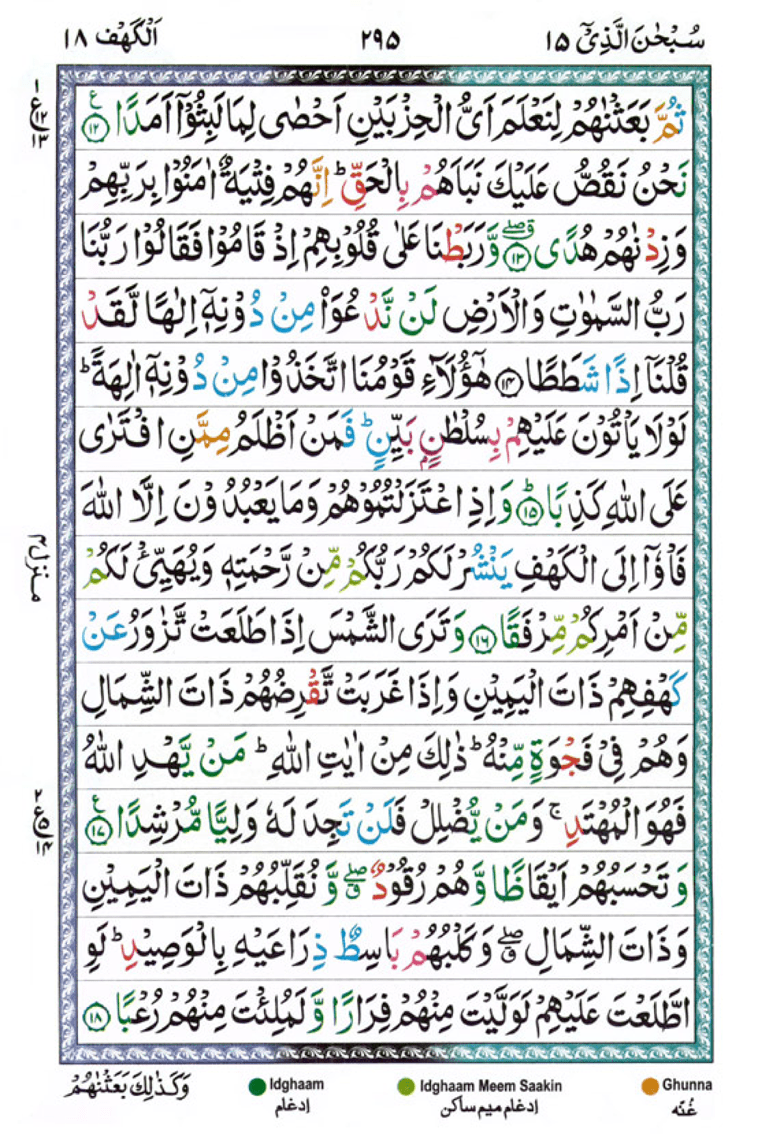 سُبۡحٰنَ الَّذِیۡۤ ۱۵ ۲۹۵ اَلۡكَهۡف ۱۸
ثُمَّ بَعَثۡنٰهُمۡ لِنَعۡلَمَ اَىُّ الۡحِزۡبَيۡنِ اَحۡصٰى لِمَا لَبِثُوۡۤا اَمَدًا ع ۱۲
نَحۡنُ نَقُصُّ عَلَيۡكَ نَبَاَهُمۡ بِالۡحَـقِّ‌ ؕ اِنَّهُمۡ فِتۡيَةٌ اٰمَنُوۡا بِرَبِّهِمۡ
وَزِدۡنٰهُمۡ هُدًى ۱۳ وَّرَبَطۡنَا عَلٰى قُلُوۡبِهِمۡ اِذۡ قَامُوۡا فَقَالُوۡا رَبُّنَا
رَبُّ السَّمٰوٰتِ وَالۡاَرۡضِ لَنۡ نَّدۡعُوَا۟ مِنۡ دُوۡنِهٖۤ اِلٰهًـا لَّقَدۡ
قُلۡنَاۤ اِذًا شَطَطًا ۱۴ هٰٓؤُلَاۤءِ قَوۡمُنَا اتَّخَذُوۡا مِنۡ دُوۡنِهٖۤ اٰلِهَةً ؕ
لَوۡ لَا يَاۡتُوۡنَ عَلَيۡهِمۡ بِسُلۡطٰنٍۢ بَيِّنٍ ؕ فَمَنۡ اَظۡلَمُ مِمَّنِ افۡتَـرٰى
عَلَى اللّٰهِ كَذِبًا ؕ ۱۵ وَاِذِ اعۡتَزَلۡـتُمُوۡهُمۡ وَمَا يَعۡبُدُوۡنَ اِلَّا اللّٰهَ
فَاۡوٗۤا اِلَى الۡـكَهۡفِ يَنۡشُرۡ لَـكُمۡ رَبُّكُمۡ مِّنۡ رَّحۡمَتِهٖ وَيُهَيِّئۡ لَـكُمۡ
مِّنۡ اَمۡرِكُمۡ مِّرۡفَقًا ۱۶ وَتَرَى الشَّمۡسَ اِذَا طَلَعَتۡ تَّزٰوَرُ عَنۡ
كَهۡفِهِمۡ ذَاتَ الۡيَمِيۡنِ وَاِذَا غَرَبَتۡ تَّقۡرِضُهُمۡ ذَاتَ الشِّمَالِ
وَهُمۡ فِىۡ فَجۡوَةٍ مِّنۡهُ ؕ ذٰ لِكَ مِنۡ اٰيٰتِ اللّٰهِ ؕ مَنۡ يَّهۡدِ اللّٰهُ
فَهُوَ الۡمُهۡتَدِ ۚ وَمَنۡ يُّضۡلِلۡ فَلَنۡ تَجِدَ لَهٗ وَلِيًّا مُّرۡشِدًا ع ۱۷
وَ تَحۡسَبُهُمۡ اَيۡقَاظًا وَّهُمۡ رُقُوۡدٌ ‌ۖ وَّنُـقَلِّبُهُمۡ ذَاتَ الۡيَمِيۡنِ
وَ ذَاتَ الشِّمَالِ ‌ۖ وَكَلۡبُهُمۡ بَاسِطٌ ذِرَاعَيۡهِ بِالۡوَصِيۡدِ‌ ؕ لَوِ
اطَّلَعۡتَ عَلَيۡهِمۡ لَوَلَّيۡتَ مِنۡهُمۡ فِرَارًا وَّلَمُلِئۡتَ مِنۡهُمۡ رُعۡبًا ۱۸
۱
ع ۱۲
۱۳
منزل ۴
۲
ع ۵
۱۴
وَكَذٰلِكَ بَعَثۡنٰهُمۡ
Idghaam
ادغام
Idghaam Meem Saakin
ادغام میم ساکن
Ghunna
غُنّه